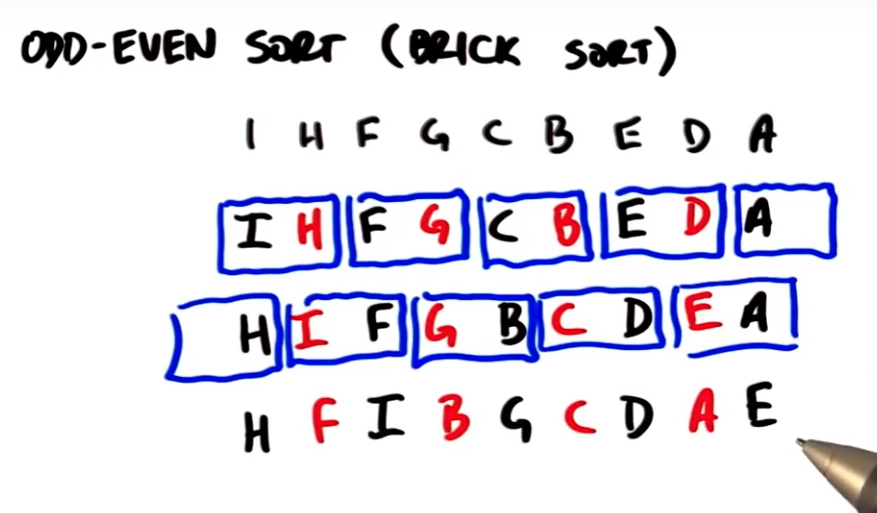 ODD-EVEN SORT (BRICK SORT)
I H F G C B E D A
I H F G C B E D A
H I F G B C D E A
H F I B G C D A E